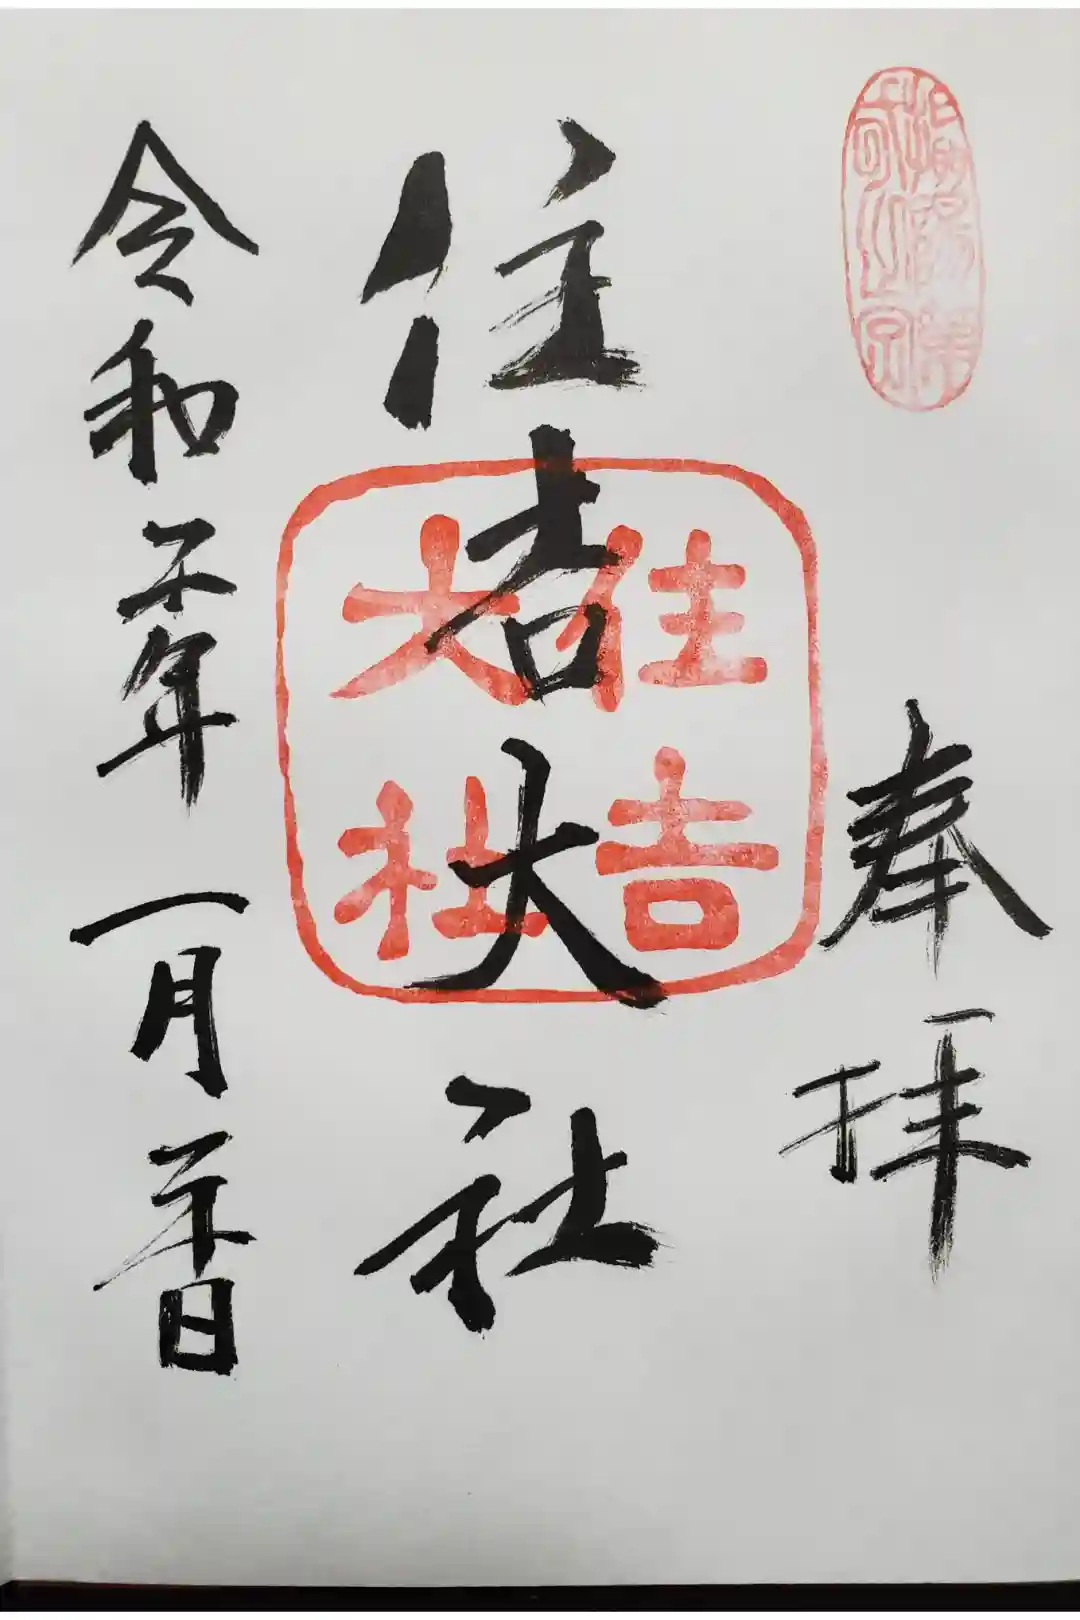 奉拝
住吉大社
住吉
大社
令和年一月日